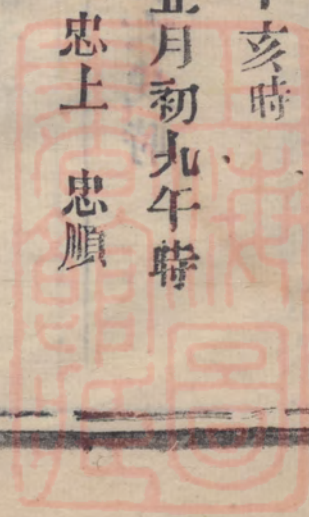 亥時
正月初九午時
忠上 忠順